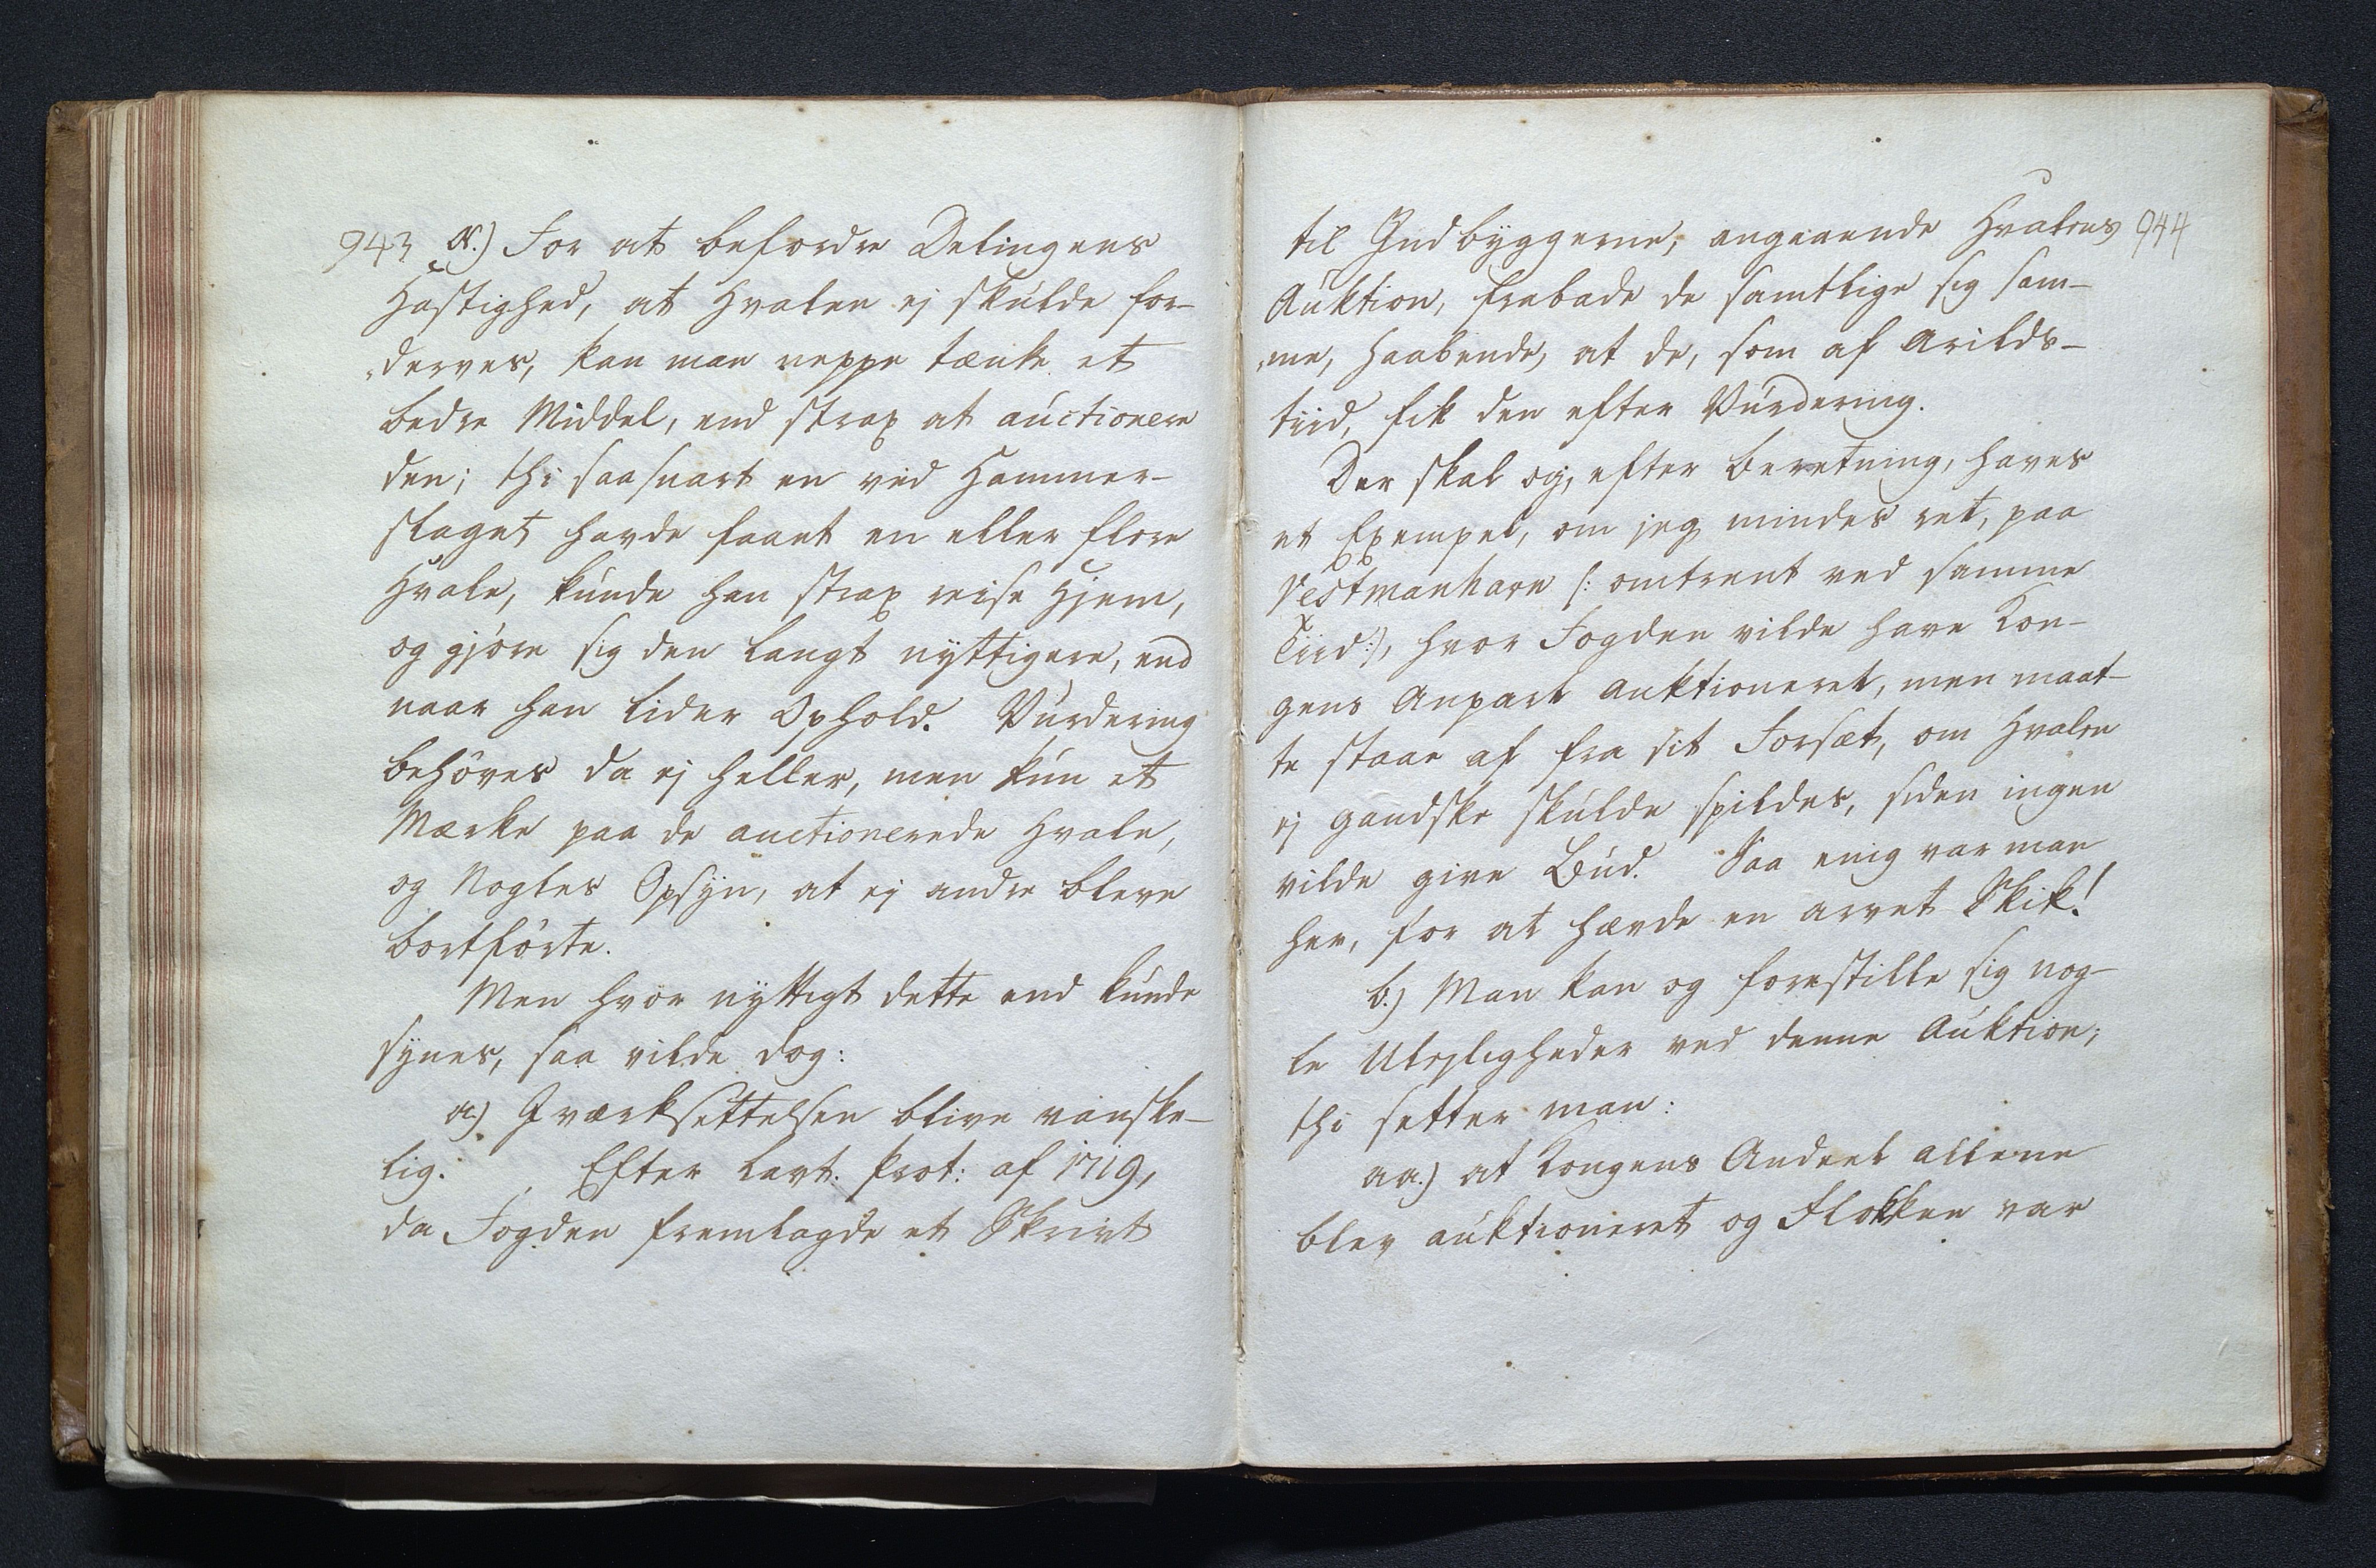 943 α.) For at befordre Delingens
Hastighed, at Hvalen ej skulde for-
derves, kan man neppe tænke et
bedre Middel, end strax at auctionere
den; thi saasnart en ved Hammer-
slaget havde faaet en eller flere
Hvale, kunde han strax reise Hjem,
og gjøre sig den langt nyttigere, end
naar han lider Ophold. Vurdering
behøves da ej heller, men kun et
Mærke paa de auctionerede Hvale,
og Nogles Opsyn, at ej andre bleve
bortførte.
Men hvor nyttigt dette end kunde
synes, saa vilde dog:
a.) Iværksettelsen blive vanske-
lig. Efter Lavt. Prot: af 1719,
da Fogden fremlagde et Skrivt
til Indbyggerne, angaaende Hvalens 944
Auktion, frabade de samtlige sig sam-
me, Haabende, at de, som af Arilds-
tiid, fik den efter Vurdering.
Der skal og, efter Beretning, haves
et Exempel, om jeg mindes ret, paa
Vestmanhavn (: omtrent ved samme
Tiid:), hvor Fogden vilde have Kon-
gens Anpart auktioneret, men maat-
te staae af fra sit Forsæt, om Hvalen
ej gandske skulde spildes, siden ingen
vilde give Bud. Saa enig var man
her, for at hævde en arvet Skik!
b.) Man kan og forestille sig nog-
le Ulejligheder ved denne Auktion;
thi setter man:
aa.) at Kongens Andeel allene
blev auktioneret og Flokken var